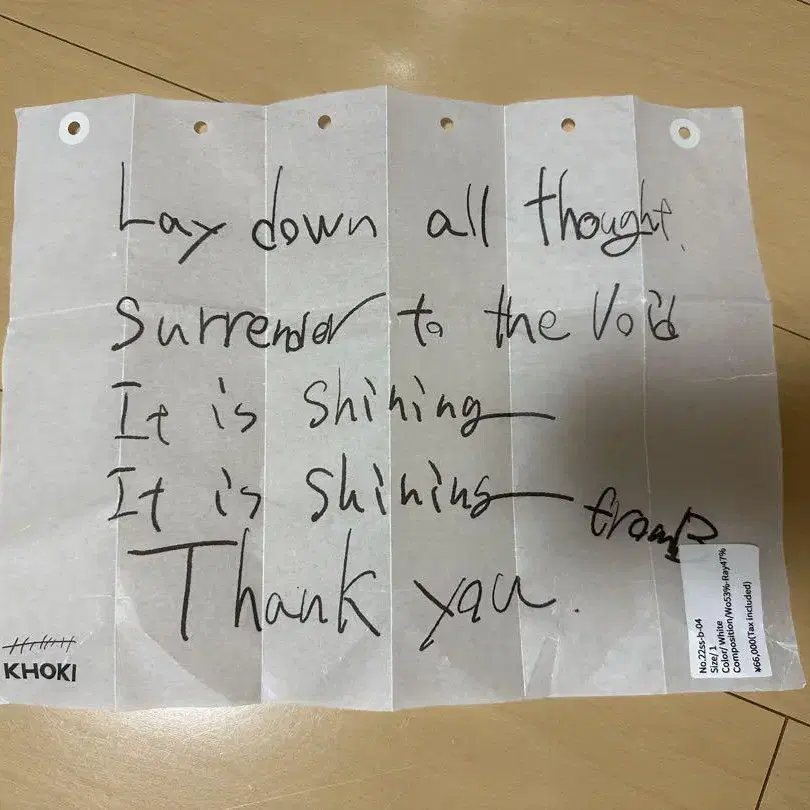 Lay down all thought.
Surrender to the Void
It is Shining
It is Shining
Thank you.
KHOKI
No.22ss-b-04
Size/ 1
Color/ White
Composition/Wo53%-Ray47%
¥66,000(Tax included)